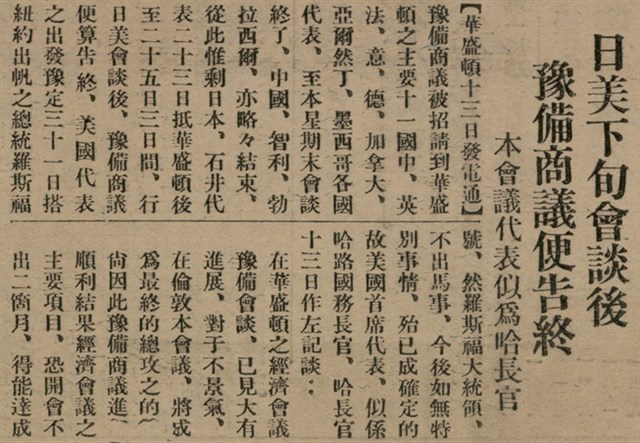 日美下旬會談後
豫備商議便告終
本會議代表似爲哈長官
【華盛頓十三日發電通】
豫備商議被招請到華盛
頓之主要十一國中、英
法、意、德、加拿大、
亞爾然丁、墨西哥各國
代表、至本星期末會談
終了、中國、智利、勃
拉西爾、亦略々結束、
從此惟剩日本、石井代
表二十三日抵華盛頓後
至二十五日三日間、行
日美會談後、豫備商議
便算告終、美國代表
之出發豫定三十一日搭
紐約出帆之總統羅斯福
號、然羅斯福大統領、
不出馬事、今後如無特
別事情、殆已成確定的
故美國首席代表、似係
哈路國務長官、哈長官
十三日作左記談‥
在華盛頓之經濟會議
豫備會談、已見大有
進展、對于不景氣、
在倫敦本會議、將成
爲最終的總攻之的(
尙因此豫備商議進(
順利結果經濟會議之
主要項目、恐開會不
出二箇月、得能達成